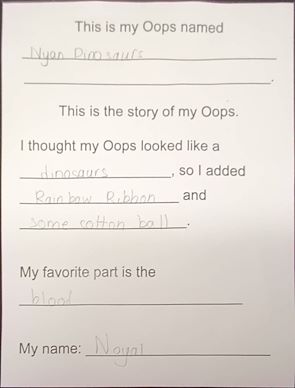 This is my Oops named
Nyan Dinosaurs
.
This is the story of my Oops.
I thought my Oops looked like a
dinosaurs, so I added
Rainbow Ribbon and
some cotton ball.
My favorite part is the
blood
My name: Noyal